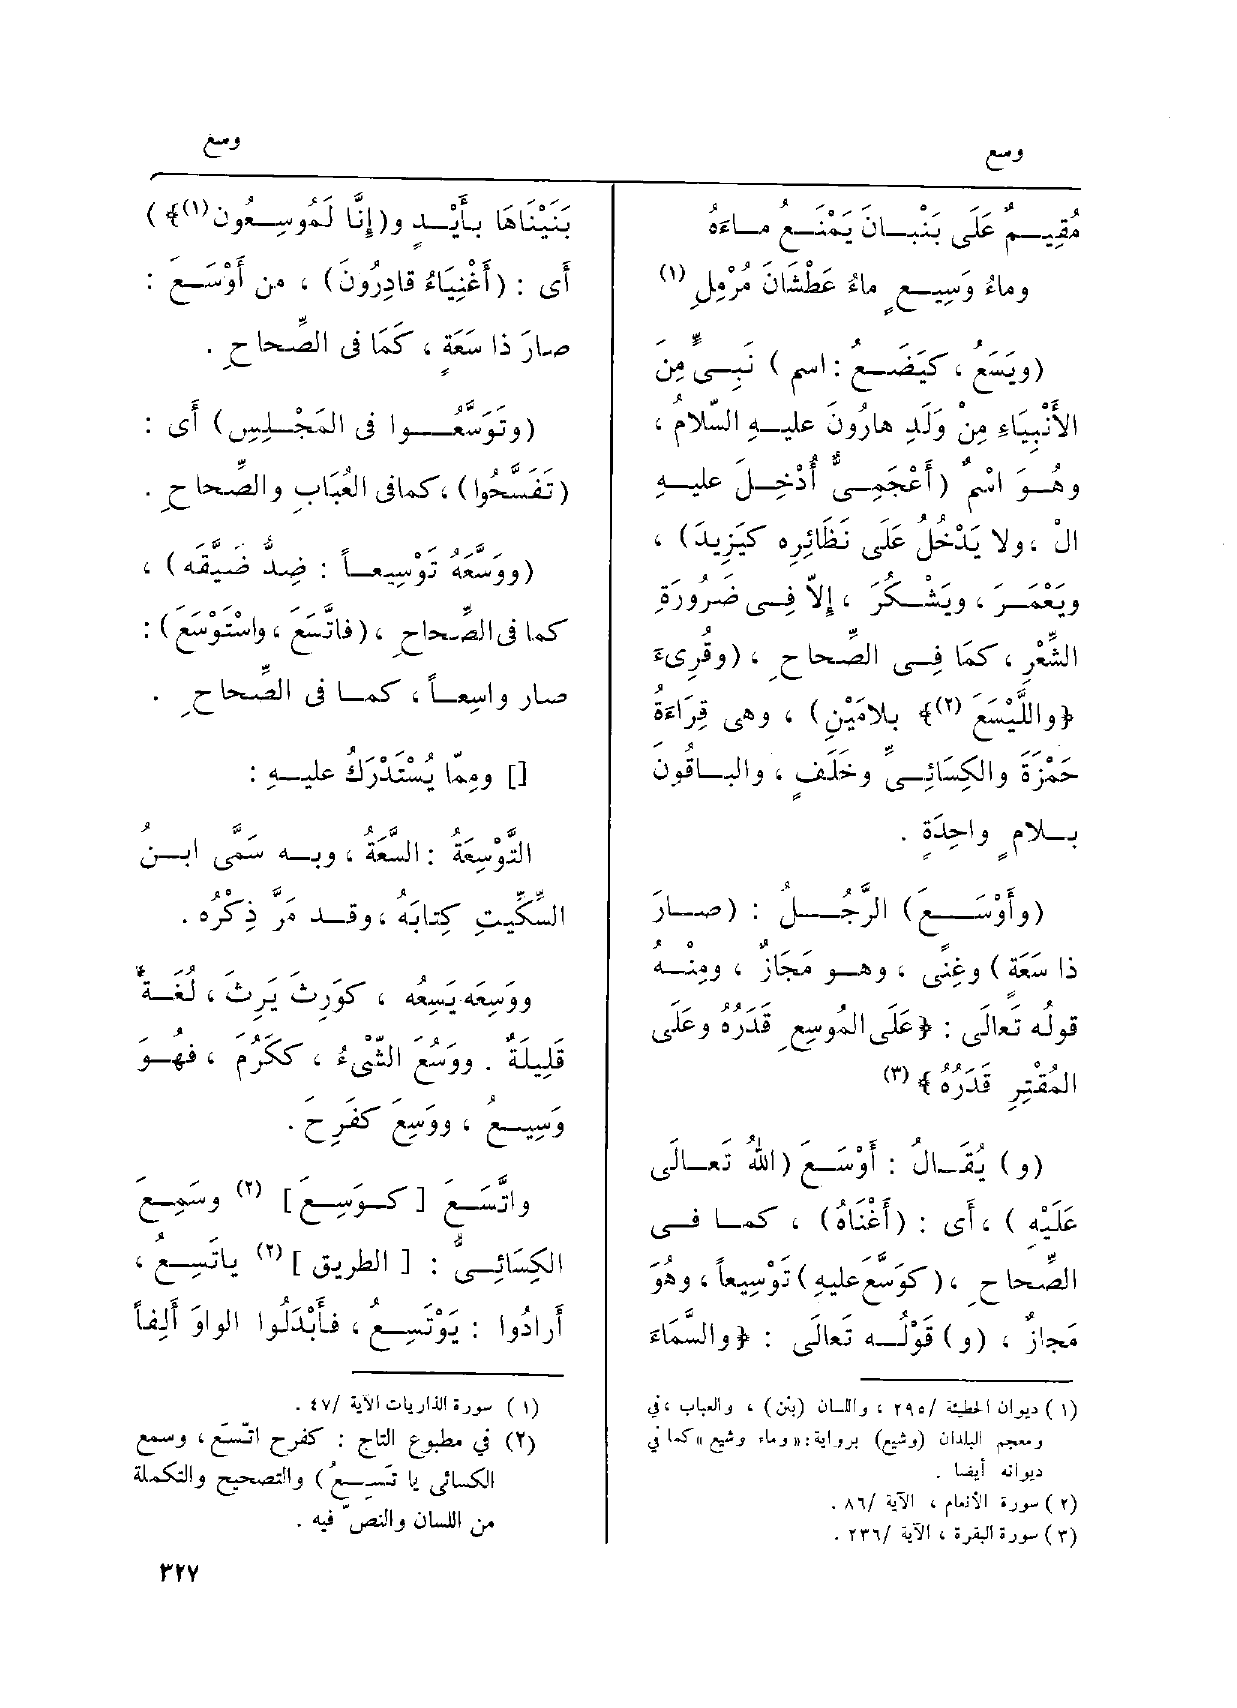 وسع
وسع
مُقِيمٌ عَلَى بَنْبَانَ يَمْنَعُ مَاءَهُ
وماءُ وَسِيعٍ ماءُ عَطْشَانَ مُرْمِلِ (١)
(ويَسَعُ ، كيَضَعُ : اسم ) نَبِىٍّ مِنَ
الأَنْبِيَاءِ مِنْ وَلَدِ هارُونَ عليهِ السّلامُ ،
وهُوَ اسْمٌ (أَعْجَمِىٌّ أُدْخِلَ عليهِ
الْ ، ولا يَدْخُلُ عَلَى نَظَائِرِه كيَزِيدَ ) ،
ويَعْمَرَ ، ويَشْكُرَ ، إلاّ فِى ضَرُورَةِ
الشِّعْرِ ، كَمَا فِى الصِّحاحِ ، (وقُرِىءَ
﴿واللَّيْسَعَ (٢)﴾ بلامَيْنِ) ، وهى قِرَاءَةُ
حَمْزَةَ والكِسَائِىِّ وخَلَفٍ ، والباقُونَ
بلامٍ واحِدَةٍ .
(وأَوْسَعَ) الرَّجُلُ : (صارَ
ذا سَعَةٍ ) وغِنًى ، وهو مَجَازٌ ، ومِنْهُ
قولُه تَعالَى : ﴿عَلَى المُوسِعِ قَدَرُهُ وعَلَى
المُقْتِرِ قَدَرُهُ﴾ (٣)
(و) يُقَالُ : أَوْسَعَ (اللهُ تَعالَى
عَلَيْهِ ) ، أَى : (أَغْنَاهُ) ، كما فى
الصِّحاحِ ، (كوَسَّعَ عليهِ) تَوْسِيعاً ، وهُوَ
مَجازٌ ، (و) قَوْلُه تَعالَى : ﴿والسَّمَاءَ
(١) ديوان الحطيئة /٢٩٥ ، واللسان (بنن) ، والعباب ، في
ومعجم البلدان (وشيع) برواية : «وماء وشيع» كما في
ديوانه أيضا .
(٢) سورة الأنعام ، الآية /٨٦ .
(٣) سورة البقرة ، الآية /٢٣٦ .
بَنَيْنَاهَا بأَيْدٍ و(إِنَّا لَمُوسِعُون(١)﴾)
أَى : (أَغْنِيَاءُ قادِرُونَ) ، من أَوْسَعَ :
صارَ ذا سَعَةٍ ، كَمَا فى الصِّحاحِ .
(وتَوَسَّعُوا فى المَجْلِسِ) أَى :
(تَفَسَّحُوا) ، كمافى العُبَابِ والصِّحاحِ .
(ووَسَّعَهُ تَوْسِيعاً : ضِدُّ ضَيَّقَه) ،
كما فى الصِّحاحِ ، (فاتَّسَعَ ، واسْتَوْسَعَ) :
صار واسِعاً ، كما فى الصِّحاحِ .
[] ومِمّا يُسْتَدْرَكُ عليهِ :
التَّوْسِعَةُ : السَّعَةُ ، وبه سَمَّى ابنُ
السِّكِّيتِ كِتابَهُ ، وقد مَرَّ ذِكْرُه .
ووَسِعَه يَسِعُه ، كوَرِثَ يَرِثُ ، لُغَةٌ
قَلِيلَةٌ . ووَسُعَ الشَّىْءُ ، ككَرُمَ ، فهُوَ
وَسِيعُ ، ووَسِعَ كفَرِحَ .
واتَّسَعَ [ كوَسِعَ ] (٢) وسَمِعَ
الكِسَائِىُّ : [ الطريق ] (٢) ياتَسِعُ ،
أَرادُوا : يَوْتَسِعُ ، فأَبْدَلُوا الواوَ أَلِفاً
(١) سورة الذاريات الآية /٤٧ .
(٢) في مطبوع التاج : كفرح اتَّسَعَ ، وسمع
الكسائى يا تَسِعُ) والتصحيح والتكملة
من اللسان والنصّ فيه .
٣٢٧